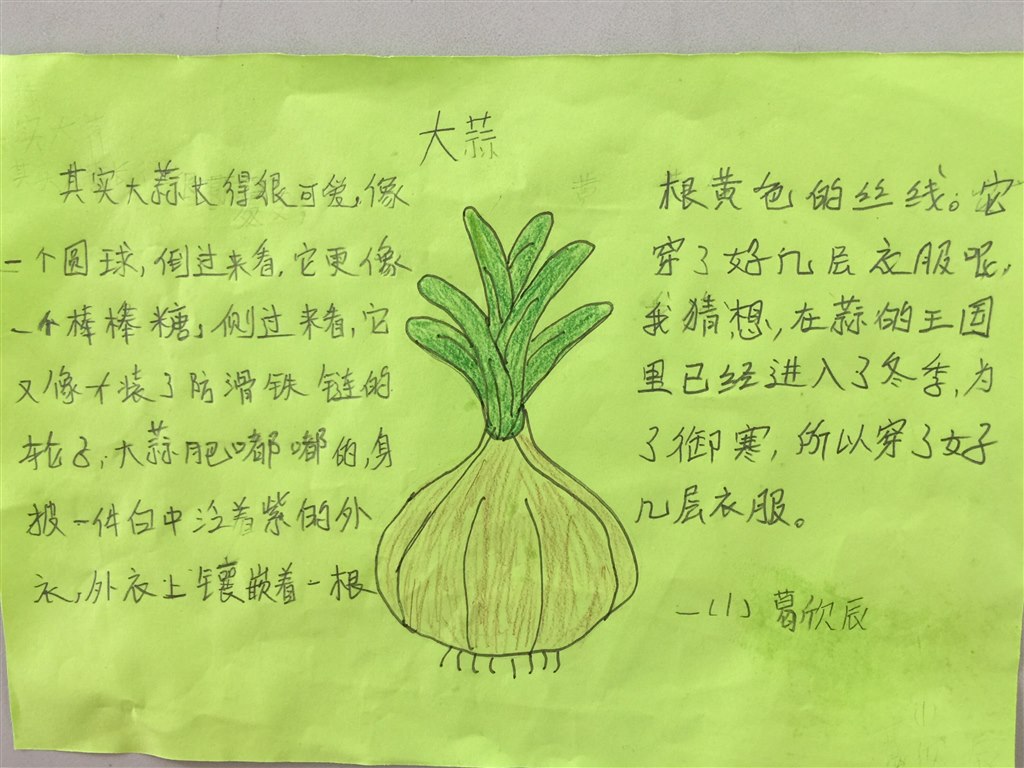 大蒜
其实大蒜长得很可爱,像
一个圆球,倒过来看,它更像
一个棒棒糖,侧过来看,它
又像才装了防滑铁链的
轮子,大蒜肥嘟嘟的,身
披一件白中泛着紫的外
衣,外衣上镶嵌着一根
根黄色的丝线。它
穿了好几层衣服呢,
我猜想,在蒜的王国
里已经进入了冬季,为
了御寒,所以穿了好
几层衣服。
一(1) 葛欣辰